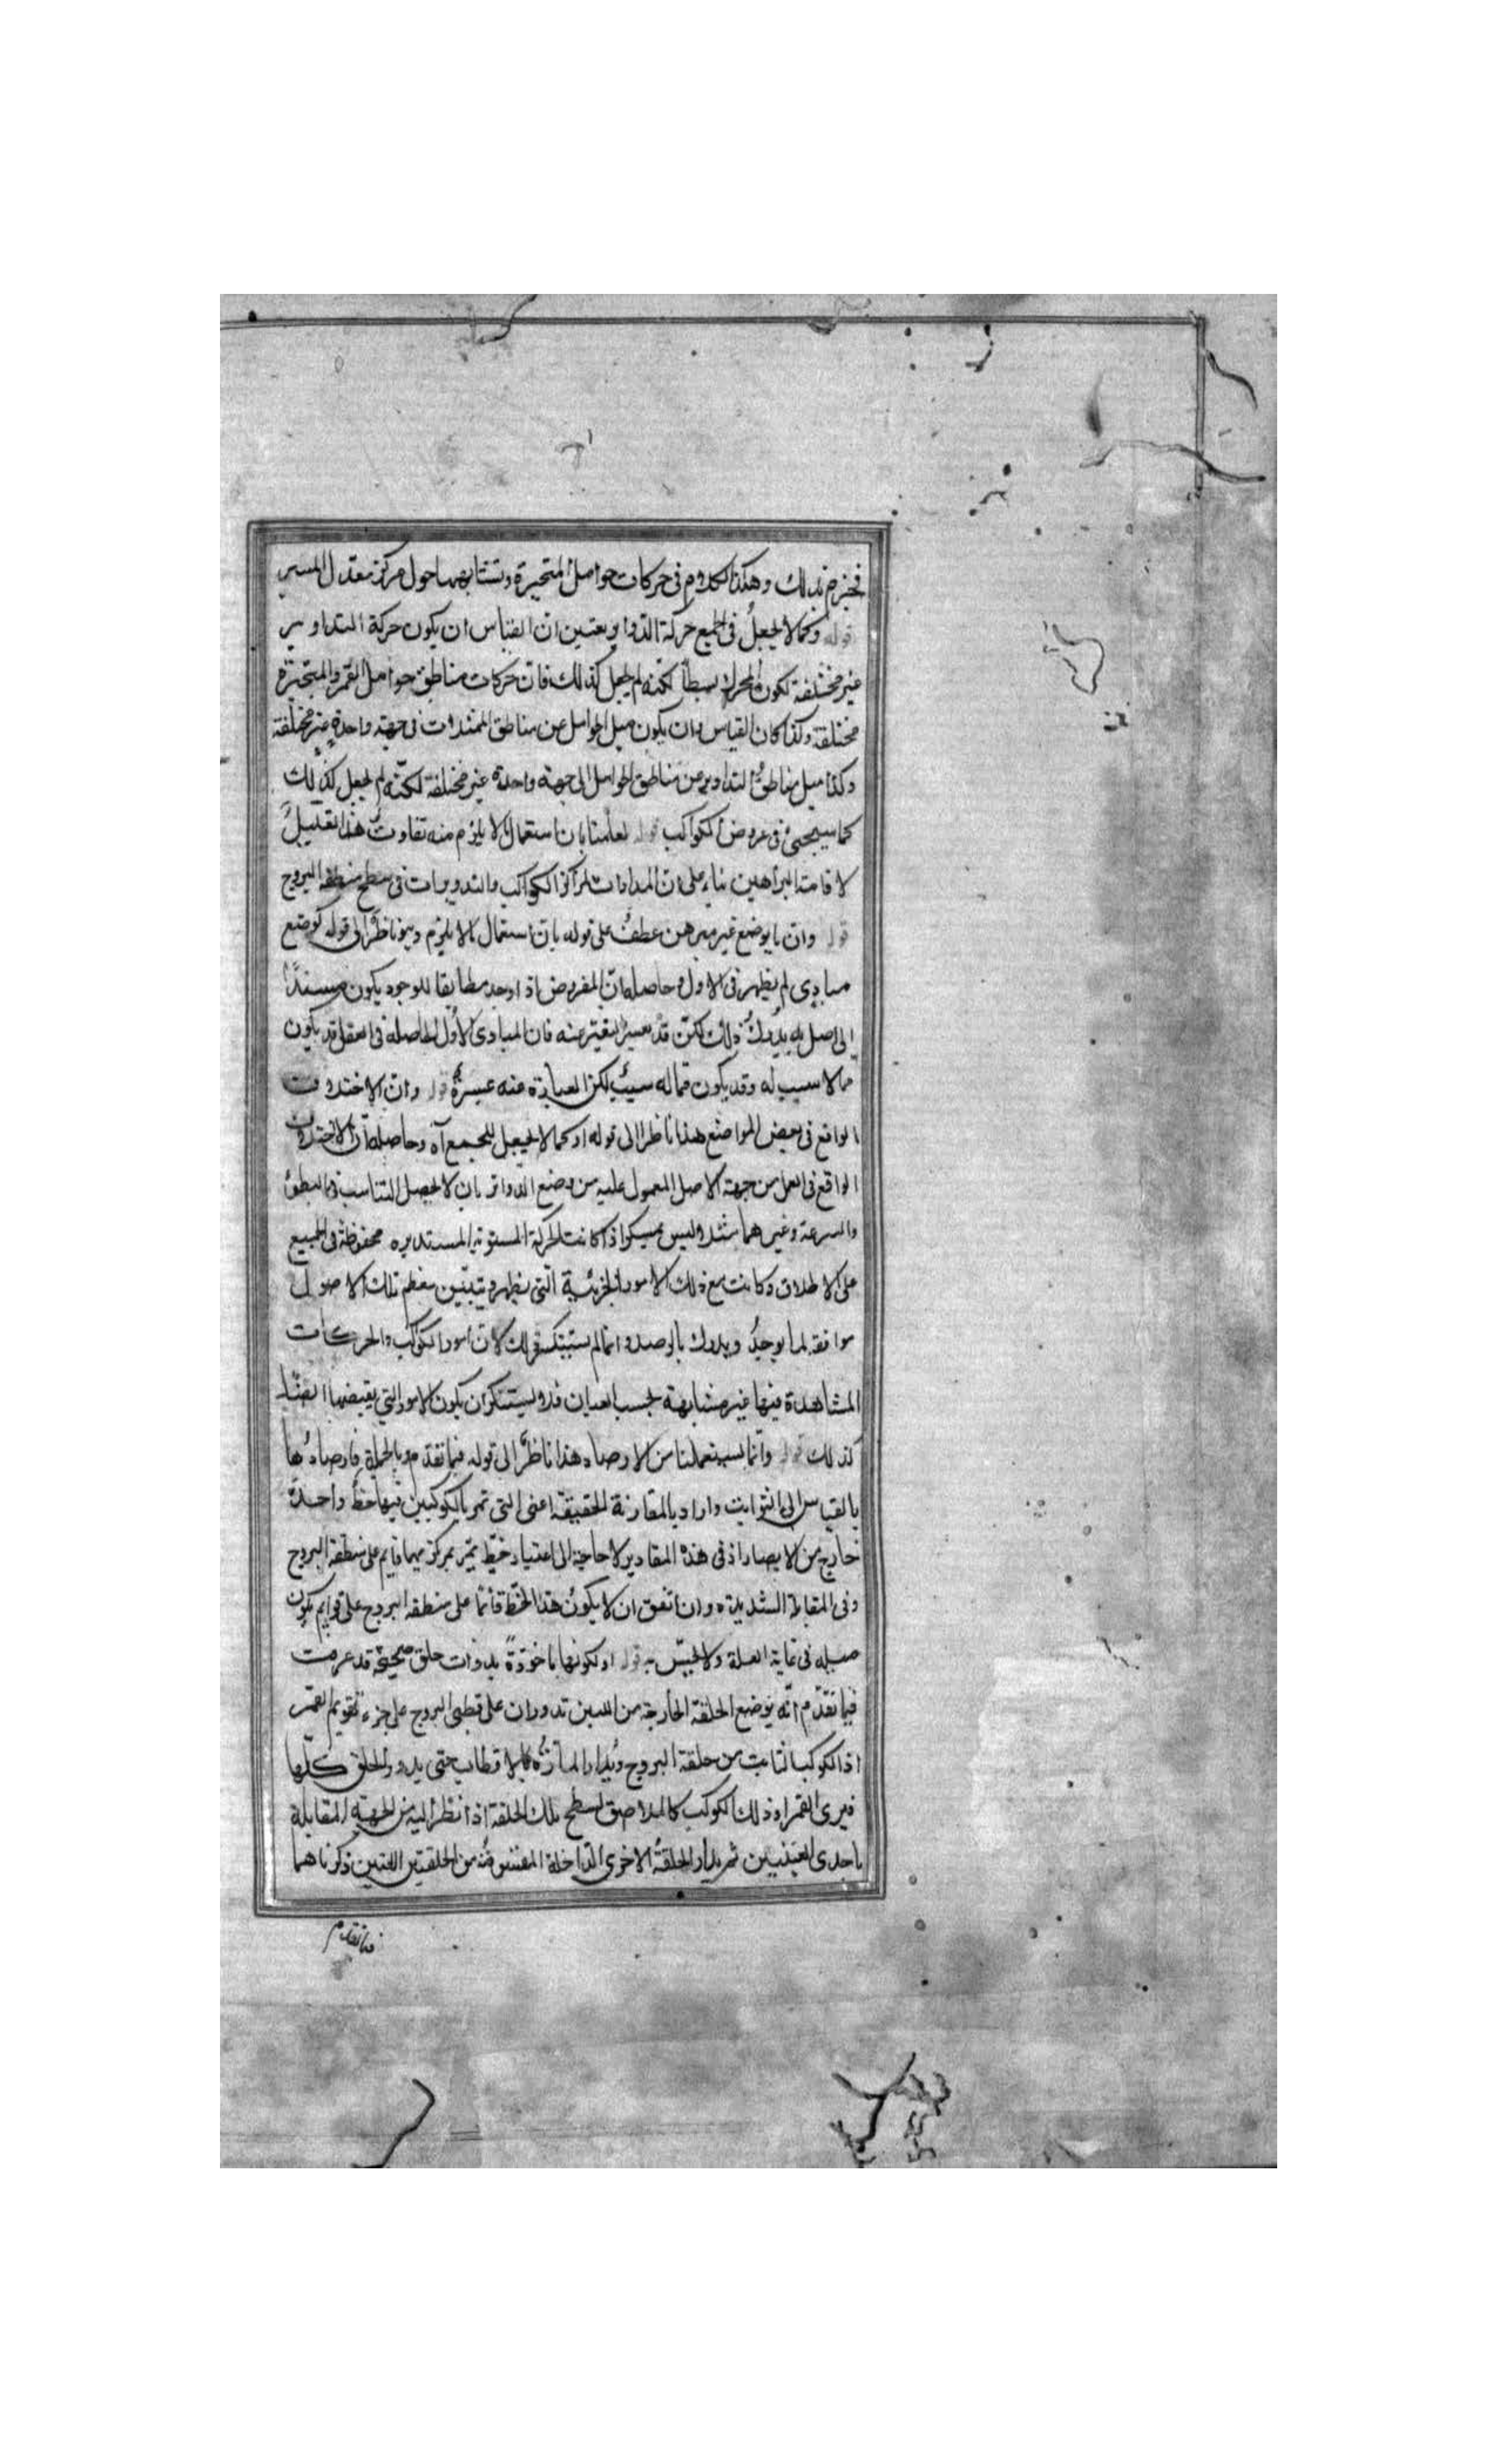 فنجزم بذلك وهكذا الكلام فى حركات حوامل المتحيرة وتشابهها حول مركز معدل المسير
قوله وكما لا يجعل فى الجميع حركة التداوير يعنى ان القياس ان يكون حركة التداوير
غير مختلفة لكون المحرك بسيطا لكنه لم يجعل كذلك فان حركات مناطق حوامل القمر والمتحيرة
مختلفة وكذا كان القياس ان يكون ميل الحوامل عن مناطق الممثلات فى جهة واحدة غير مختلفة
وكذا ميل مناطق التداوير من مناطق الحوامل الى جهة واحدة غير مختلفة لكنه لم يجعل كذلك
كما سيجئ فى عروض الكواكب قوله لعلمنا بان استعمال ما لا يلزم منه تفاوت هذا تعليل
لاقامة البراهين بناء على ان المدارات لمراكز الكواكب والتدويرات فى سطح منطقة البروج
قوله وان ما يوضع غير مبرهن عطف على قوله بان استعمال ما لا يلزم وهو ناظر الى قوله كوضع
مبادى لم يظهر فى الاول وحاصله ان المفروض اذا وجد مطابقا للوجود يكون مستندا
الى اصل به يدرك ذلك لكن قد يعسر التعبير عنه فان المبادى الاول الحاصلة فى العقل قد يكون
مما لا سبب له وقد يكون مما له سبب لكن العبارة عنه عسرة قوله وان الاختلاف
الواقع فى بعض المواضع هذا ناظر الى قوله او كما لا يجعل للجميع آه وحاصله ان الاختلاف
الواقع فى العمل من جهة الاصل المعمول عليه من وضع الدوائر بان لا يحصل التناسب فى البطؤ
والسرعة وغيرهما مثلا ليس بمنكر اذا كانت الحركة المستوية المستديرة محفوظة فى الجميع
على الاطلاق وكانت مع ذلك الامور الجزئية التى يظهر ويتبين معظم تلك الاصول
موافقة لما يوجد ويدرك بالرصد وانما لم يستنكر ذلك لان امور الكواكب والحركات
المشاهدة فيها غير متشابهة بحسب العيان فلا يستنكر ان يكون الامور التى يقتضيها ايضا
كذلك قوله وانما يستعملنا من الارصاد هذا ناظر الى قوله فيما تقدم وبالجملة فارصادها
بالقياس الى الثوابت واراد بالمقارنة الحقيقة اعنى التى تمر بالكوكبين فيها خط واحد
خارج من الابصار اذ فى هذه المقادير لا حاجة الى اعتبار خط يمر بمركزيهما قايم على منطقة البروج
وفى المقابلة الشديدة وان اتفق ان لا يكون هذا الخط قائما على منطقة البروج على قوايم يكون
ميله فى غاية القلة ولا يحس به قوله او لكونها ماخوذة بذوات حلق صحيحة قد عرفت
فيما تقدم انه يوضع الحلقة الخارجة من اللتين تدوران على قطبى البروج على جزء تقويم القمر
اذ الكوكب الثابت من حلقة البروج ويدار المارة بالاقطاب حتى يدور الحلق كلها
فيرى القمر او ذلك الكوكب كالملاصق لسطح تلك الحلقة اذا نظر اليه من الجهة المقابلة
باحدى العينين ثم يدار الحلقة الاخرى الداخلة من الحلقتين اللتين ذكرناهما
فيما تقدم